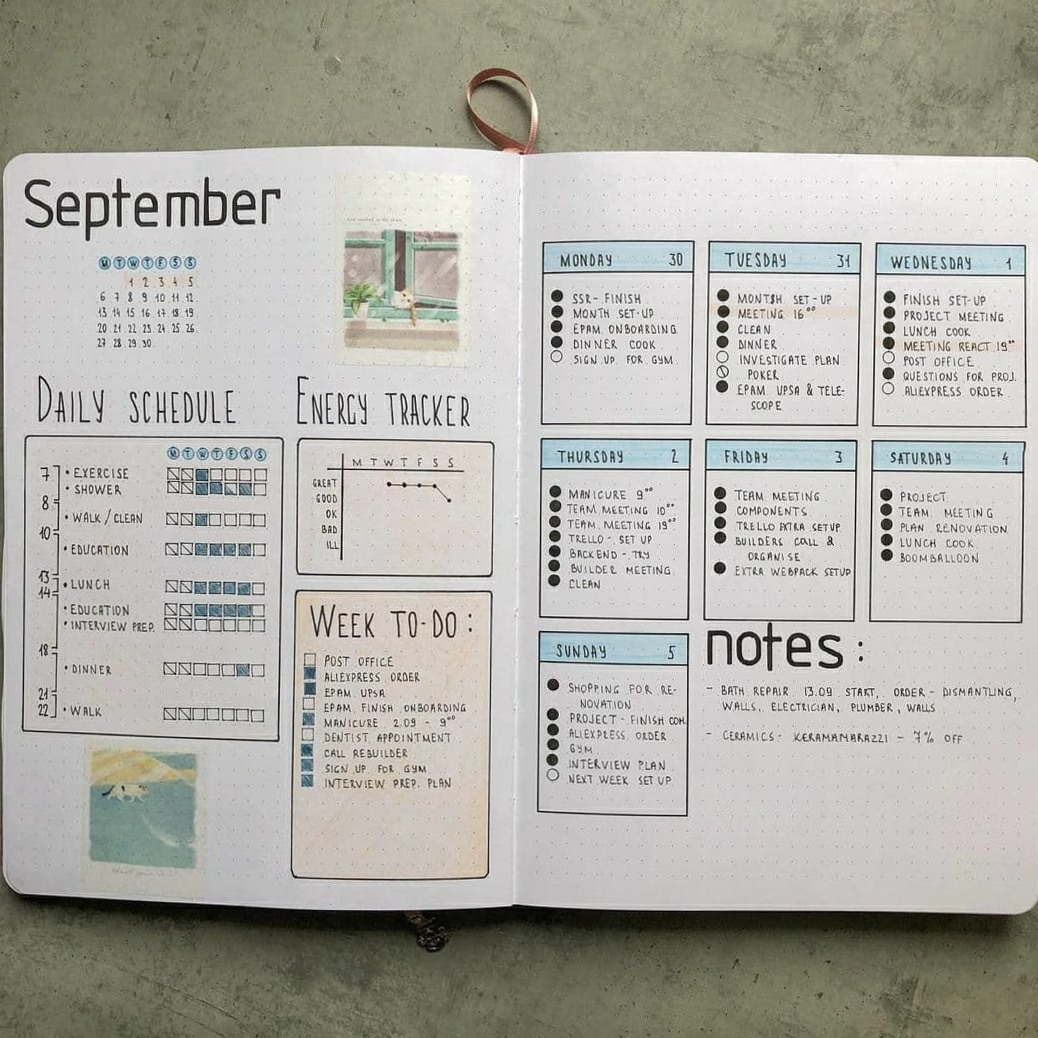 September
M T W T F S S
1 2 3 4 5
6 7 8 9 10 11 12
13 14 15 16 17 18 19
20 21 22 23 24 25 26
27 28 29 30
DAILY SCHEDULE
M T W T F S S
7
• EXERCISE
• SHOWER
8
• WALK / CLEAN
10
• EDUCATION
13
• LUNCH
14
• EDUCATION
• INTERVIEW PREP.
18
• DINNER
21
22
• WALK
ENERGY TRACKER
M T W T F S S
GREAT
GOOD
OK
BAD
ILL
WEEK TO-DO:
POST OFFICE
ALIEXPRESS ORDER
EPAM UPSA
EPAM FINISH ONBOARDING
MANICURE 2.09 - 9⁰⁰
DENTIST APPOINTMENT
CALL REBUILDER
SIGN UP FOR GYM
INTERVIEW PREP. PLAN
MONDAY 30
SSR - FINISH
MONTH SET-UP
EPAM ONBOARDING
DINNER COOK
SIGN UP FOR GYM
TUESDAY 31
MONTSH SET-UP
MEETING 16⁰⁰
CLEAN
DINNER
INVESTIGATE PLAN
POKER
EPAM UPSA & TELE-
SCOPE
WEDNESDAY 1
FINISH SET-UP
PROJECT MEETING
LUNCH COOK
MEETING REACT 19⁰⁰
POST OFFICE
QUESTIONS FOR PROJ.
ALIEXPRESS ORDER
THURSDAY 2
MANICURE 9⁰⁰
TEAM MEETING 10⁰⁰
TEAM MEETING 19⁰⁰
TRELLO - SET UP
BACKEND - TRY
BUILDER MEETING
CLEAN
FRIDAY 3
TEAM MEETING
COMPONENTS
TRELLO EXTRA SETUP
BUILDERS CALL &
ORGANISE
EXTRA WEBPACK SETUP
SATURDAY 4
PROJECT
TEAM MEETING
PLAN RENOVATION
LUNCH COOK
BOOMBALLOON
SUNDAY 5
SHOPPING FOR RE-
NOVATION
PROJECT - FINISH COM.
ALIEXPRESS ORDER
GYM
INTERVIEW PLAN
NEXT WEEK SET UP
notes:
- BATH REPAIR 13.09 START, ORDER - DISMANTLING,
WALLS, ELECTRICIAN, PLUMBER, WALLS
- CERAMICS - KERAMAMARAZZI - 7% OFF